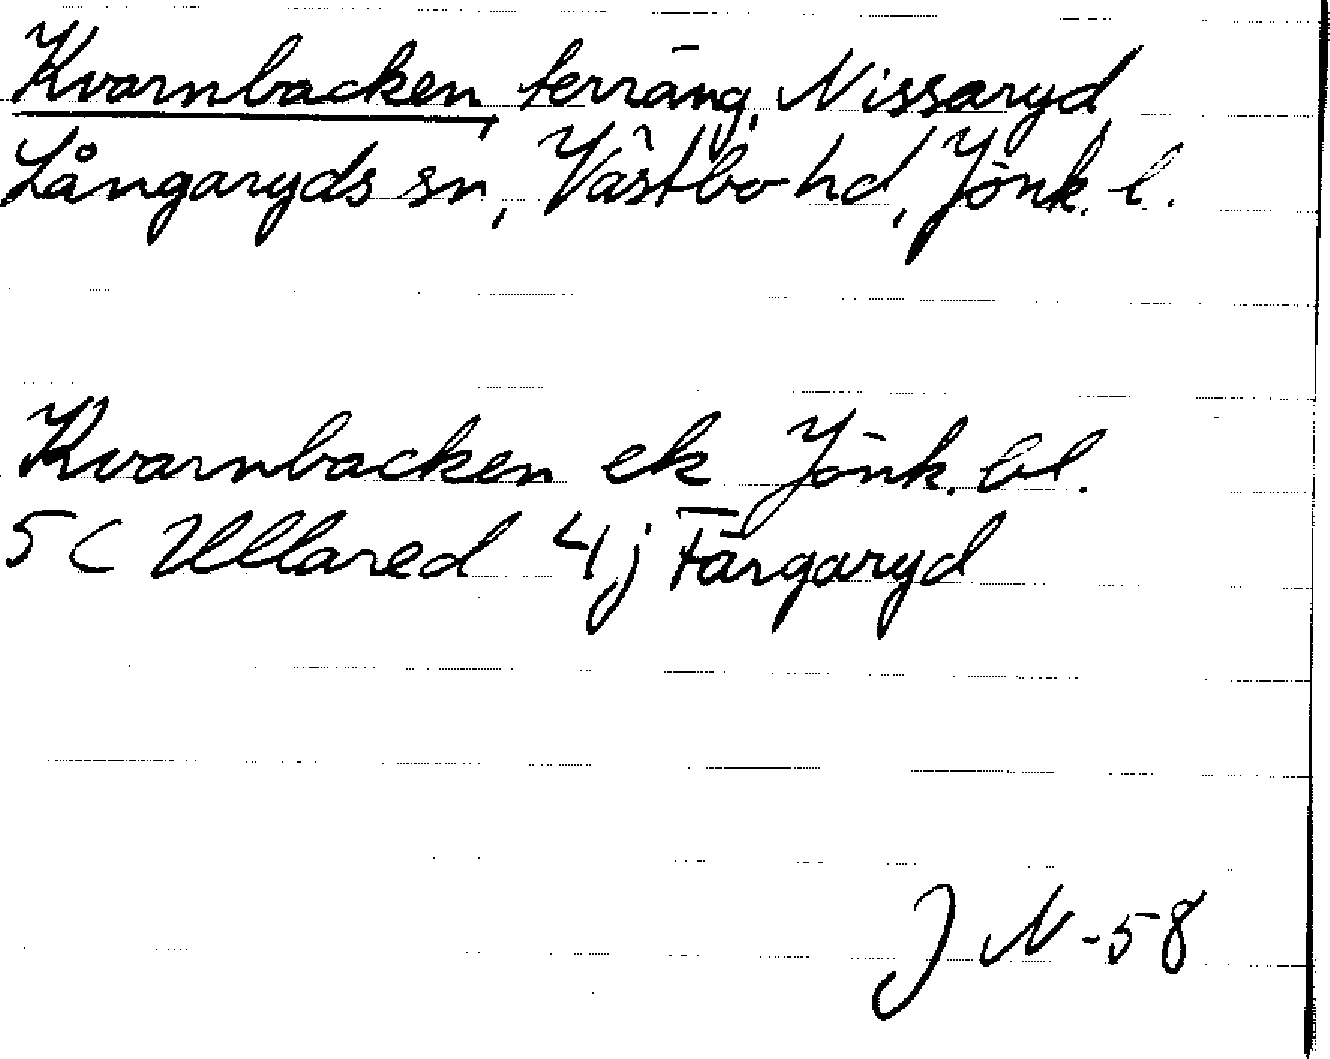 Kvarnbacken, terräng, Nissaryd
Långaryds sn, Västbo hd, Jönk. l.
Kvarnbacken ek Jönk. bl.
5C Ullared 4j Färgaryd
J N -58